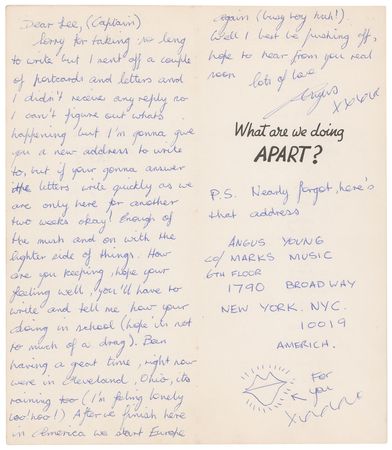 Dear Lee, (Captain)
Sorry for taking so long
to write but I sent off a couple
of postcards and letters and
I didn't receive any reply so
I can't figure out whats
happening but I'm gonna give
you a new address to write
to, but if your gonna answer
the letters write quickly as we
are only here for another
two weeks okay! Enough of
the mush and on with the
lighter side of things. How
are you keeping, hope your
feeling well, you'll have to
write and tell me how your
doing in school (hope it's not
to much of a drag). Been
having a great time, right now
were in Cleveland, Ohio, its
raining too (I'm feling lonely
boo! hoo!) After we finish here
in America we start Europe
again (busy boy huh!).
Well I best be pushing off,
hope to hear from you real
soon
lots of love
Angus
xxxxx
What are we doing
APART?
P.S. Nearly forgot, here's
that address
ANGUS YOUNG
c/o MARKS MUSIC
6TH FLOOR
1790 BROADWAY
NEW YORK. NYC.
10019
AMERICA.
For
you